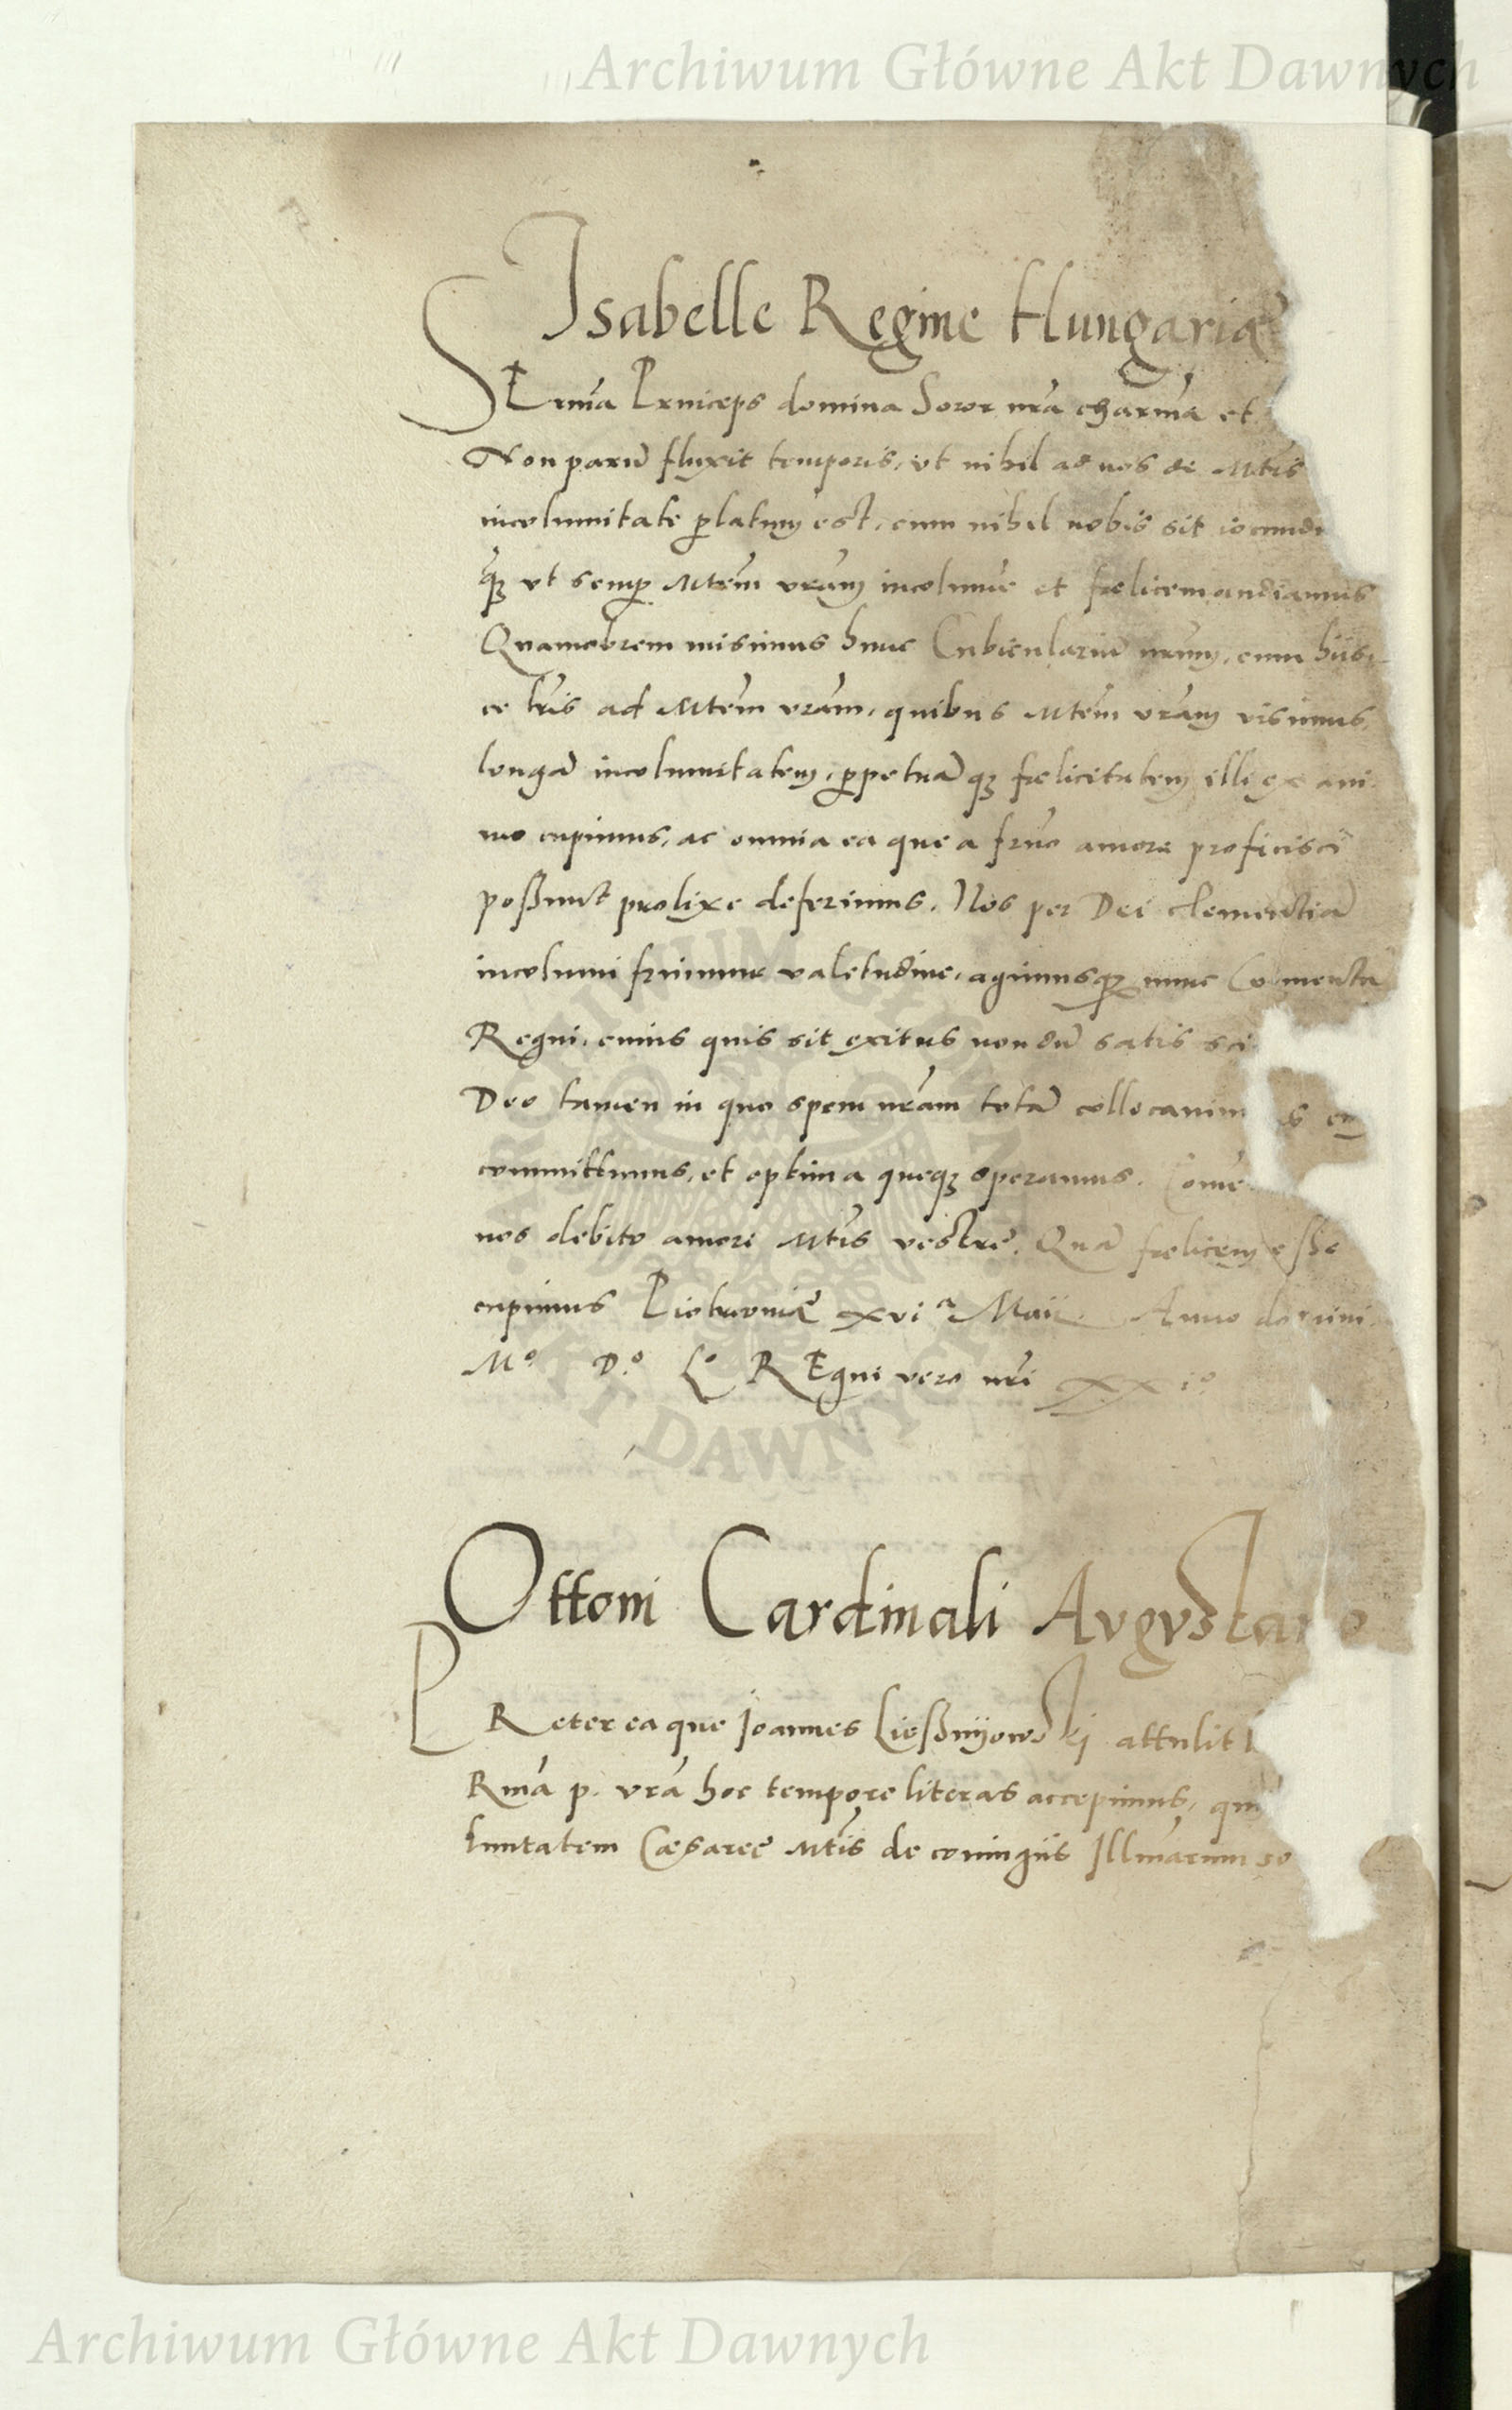 Archiwum Główne Akt Dawnych
Isabelle Regine Hungariæ
SErma Prniceps domina Soror nra charma et
Non parū fluxit temporis, ut nihil ad nos de Mtis
incolumitate platum est, cum nihil nobis sit iocundi
q̃ꝫ ut semp Mtem vram incolumē et fœlicem audiamus
Quamobrem misimus hunc Cubiculariū nrum, cum hiis
ce tris ad Mtem vram, quibus Mtem vram visimus,
longā incolumitatem, ppetuā qꝫ fœlicitatem illi ex ani
mo cupimus, ac omnia ea que a frno amore proficisci
poßunt prolixe deferimus. Nos per Dei clementiā
incolumi fruimur valetudine, agimusqꝫ nunc Comenta
Regni, cuius quis sit exitus nondū satis sci
Deo tamen in quo spem nram totā collocavim s
committimus, et optima queqꝫ speramus. Come
nos debito amori Mtis vestrę. Quā fœlicem eße
cupimus Piotrconię xvia Maii Anno domini
Mo Do Lo REgni vero nri xxio
Ottoni Cardinali Avgvstano
PReter ea que Joannes Ließnÿowskj attulit
Rma p. vra hoc tempore literas accepimus,
luntatem Cæsareę Mtis de coniugiis Illmarum so
ARCHIWUM GŁÓWNE AKT DAWNYCH
Archiwum Główne Akt Dawnych